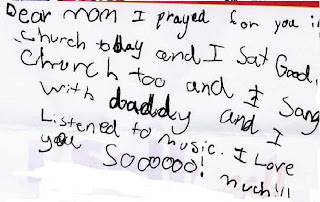 Dear mom I prayed for you in
church today and I sat Good.
Church too and I Sang
with daddy and I
Listened to music. I Love
you Sooooo! much!!!